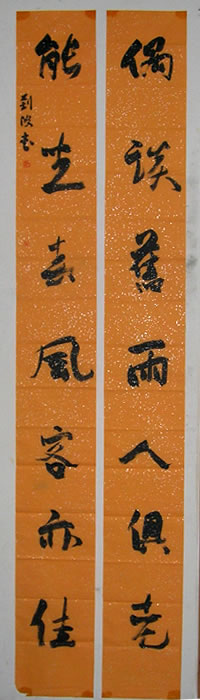 偶談舊雨人俱老
能坐春風客亦佳
劉波書